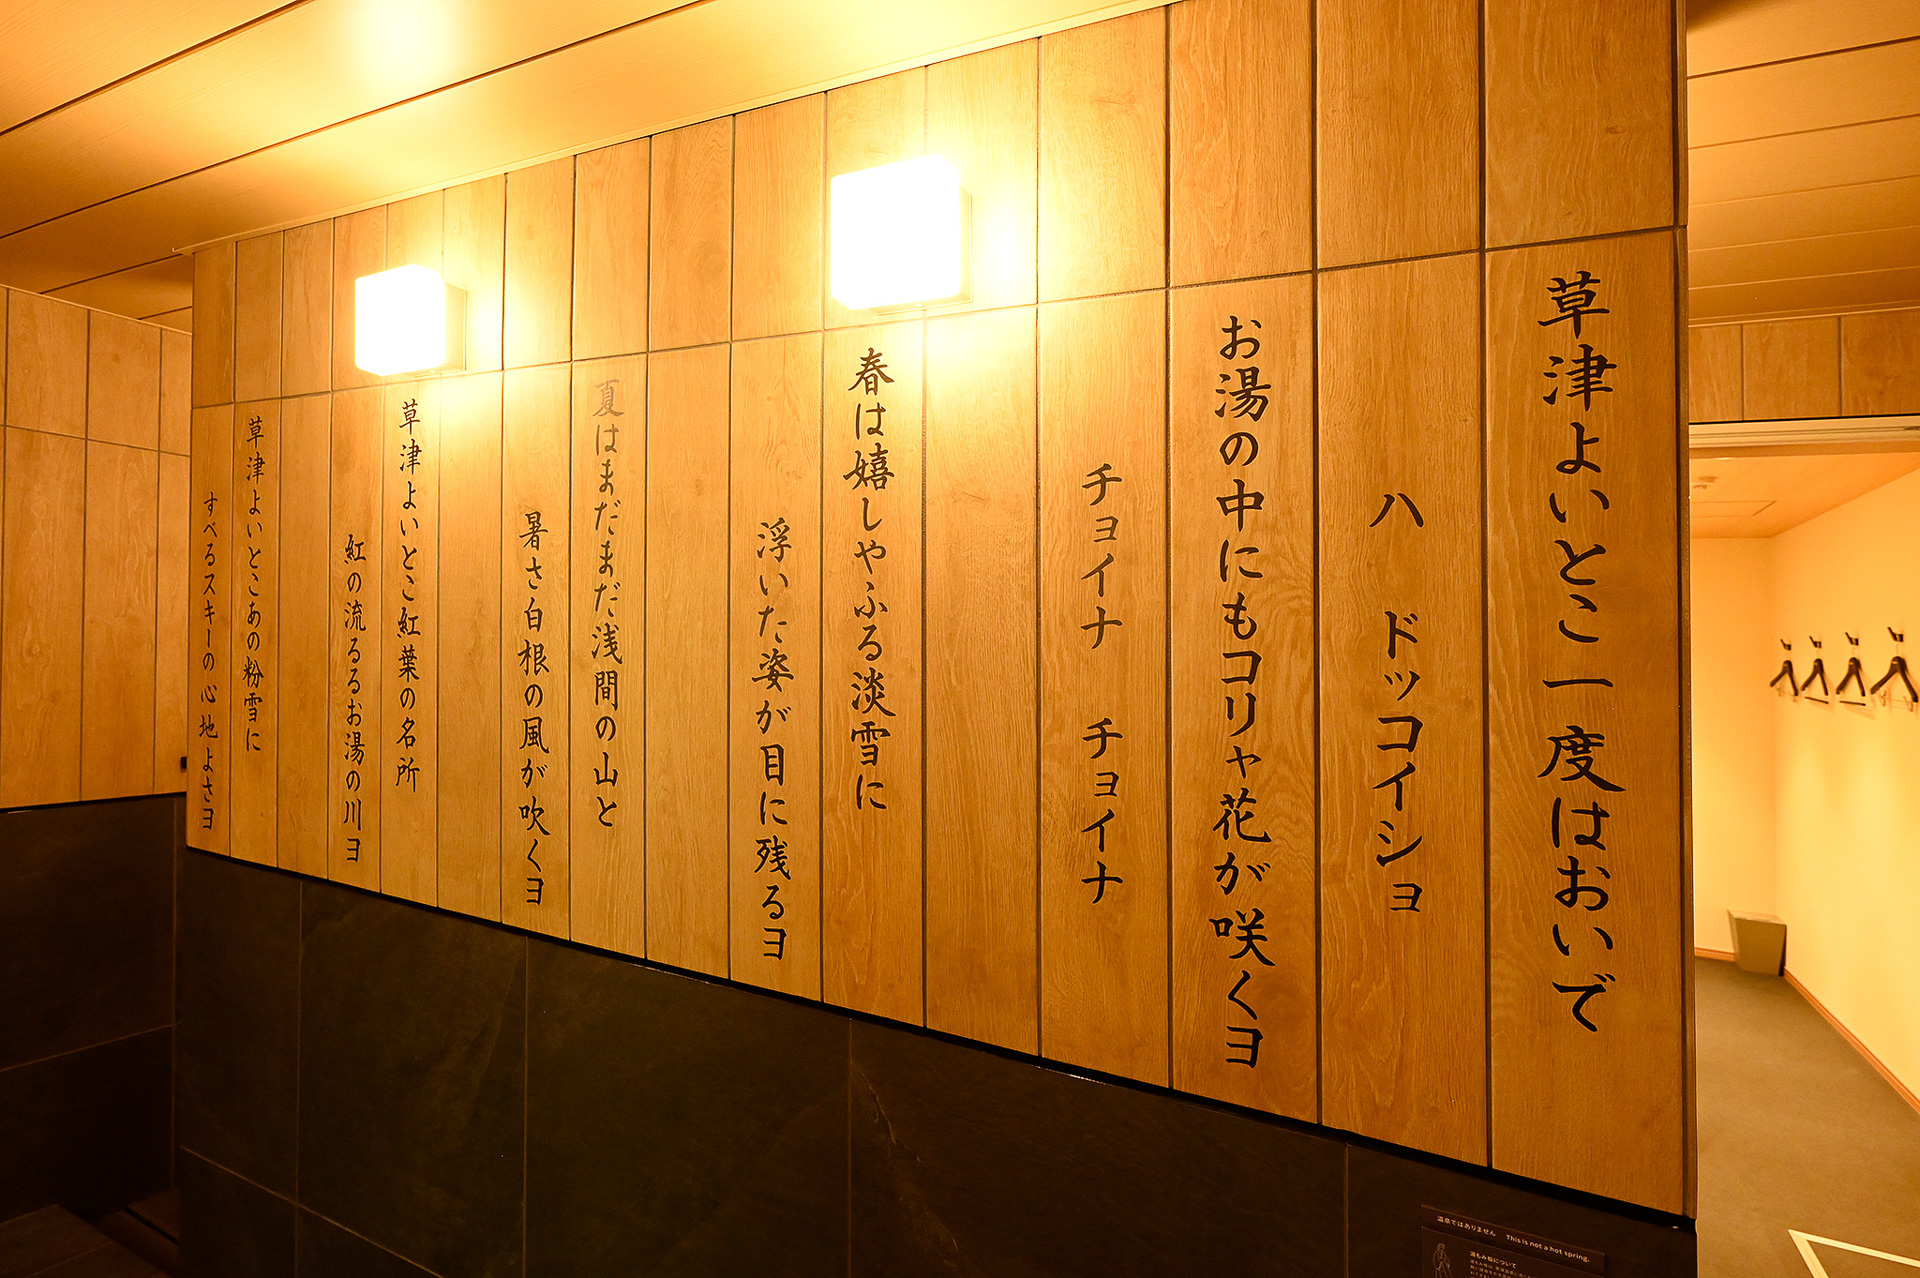 草津よいとこ一度はおいで
ハ ドッコイショ
お湯の中にもコリャ花が咲くヨ
チョイナ チョイナ
春は嬉しやふる淡雪に
浮いた姿が目に残るヨ
夏はまだまだ浅間の山と
暑さ白根の風が吹くヨ
草津よいとこ紅葉の名所
紅の流るるお湯の川ヨ
草津よいとこあの粉雪に
すべるスキーの心地よさヨ
温泉ではありません This is not a hot spring.
湯もみ板について